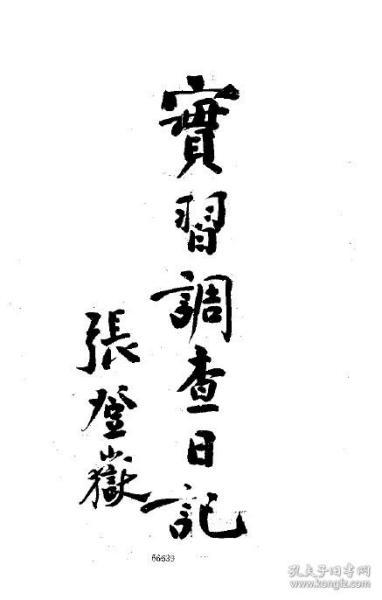 實習調查日記
張登嶽
66639
孔夫子旧书网
www.kongfz.com